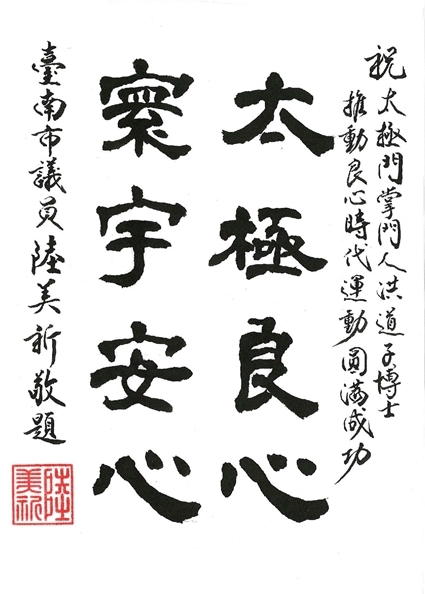 祝太極門掌門人洪道子博士
推動良心時代運動圓滿成功
太極良心
寰宇安心
臺南市議員陸美祈敬題
陸美祈